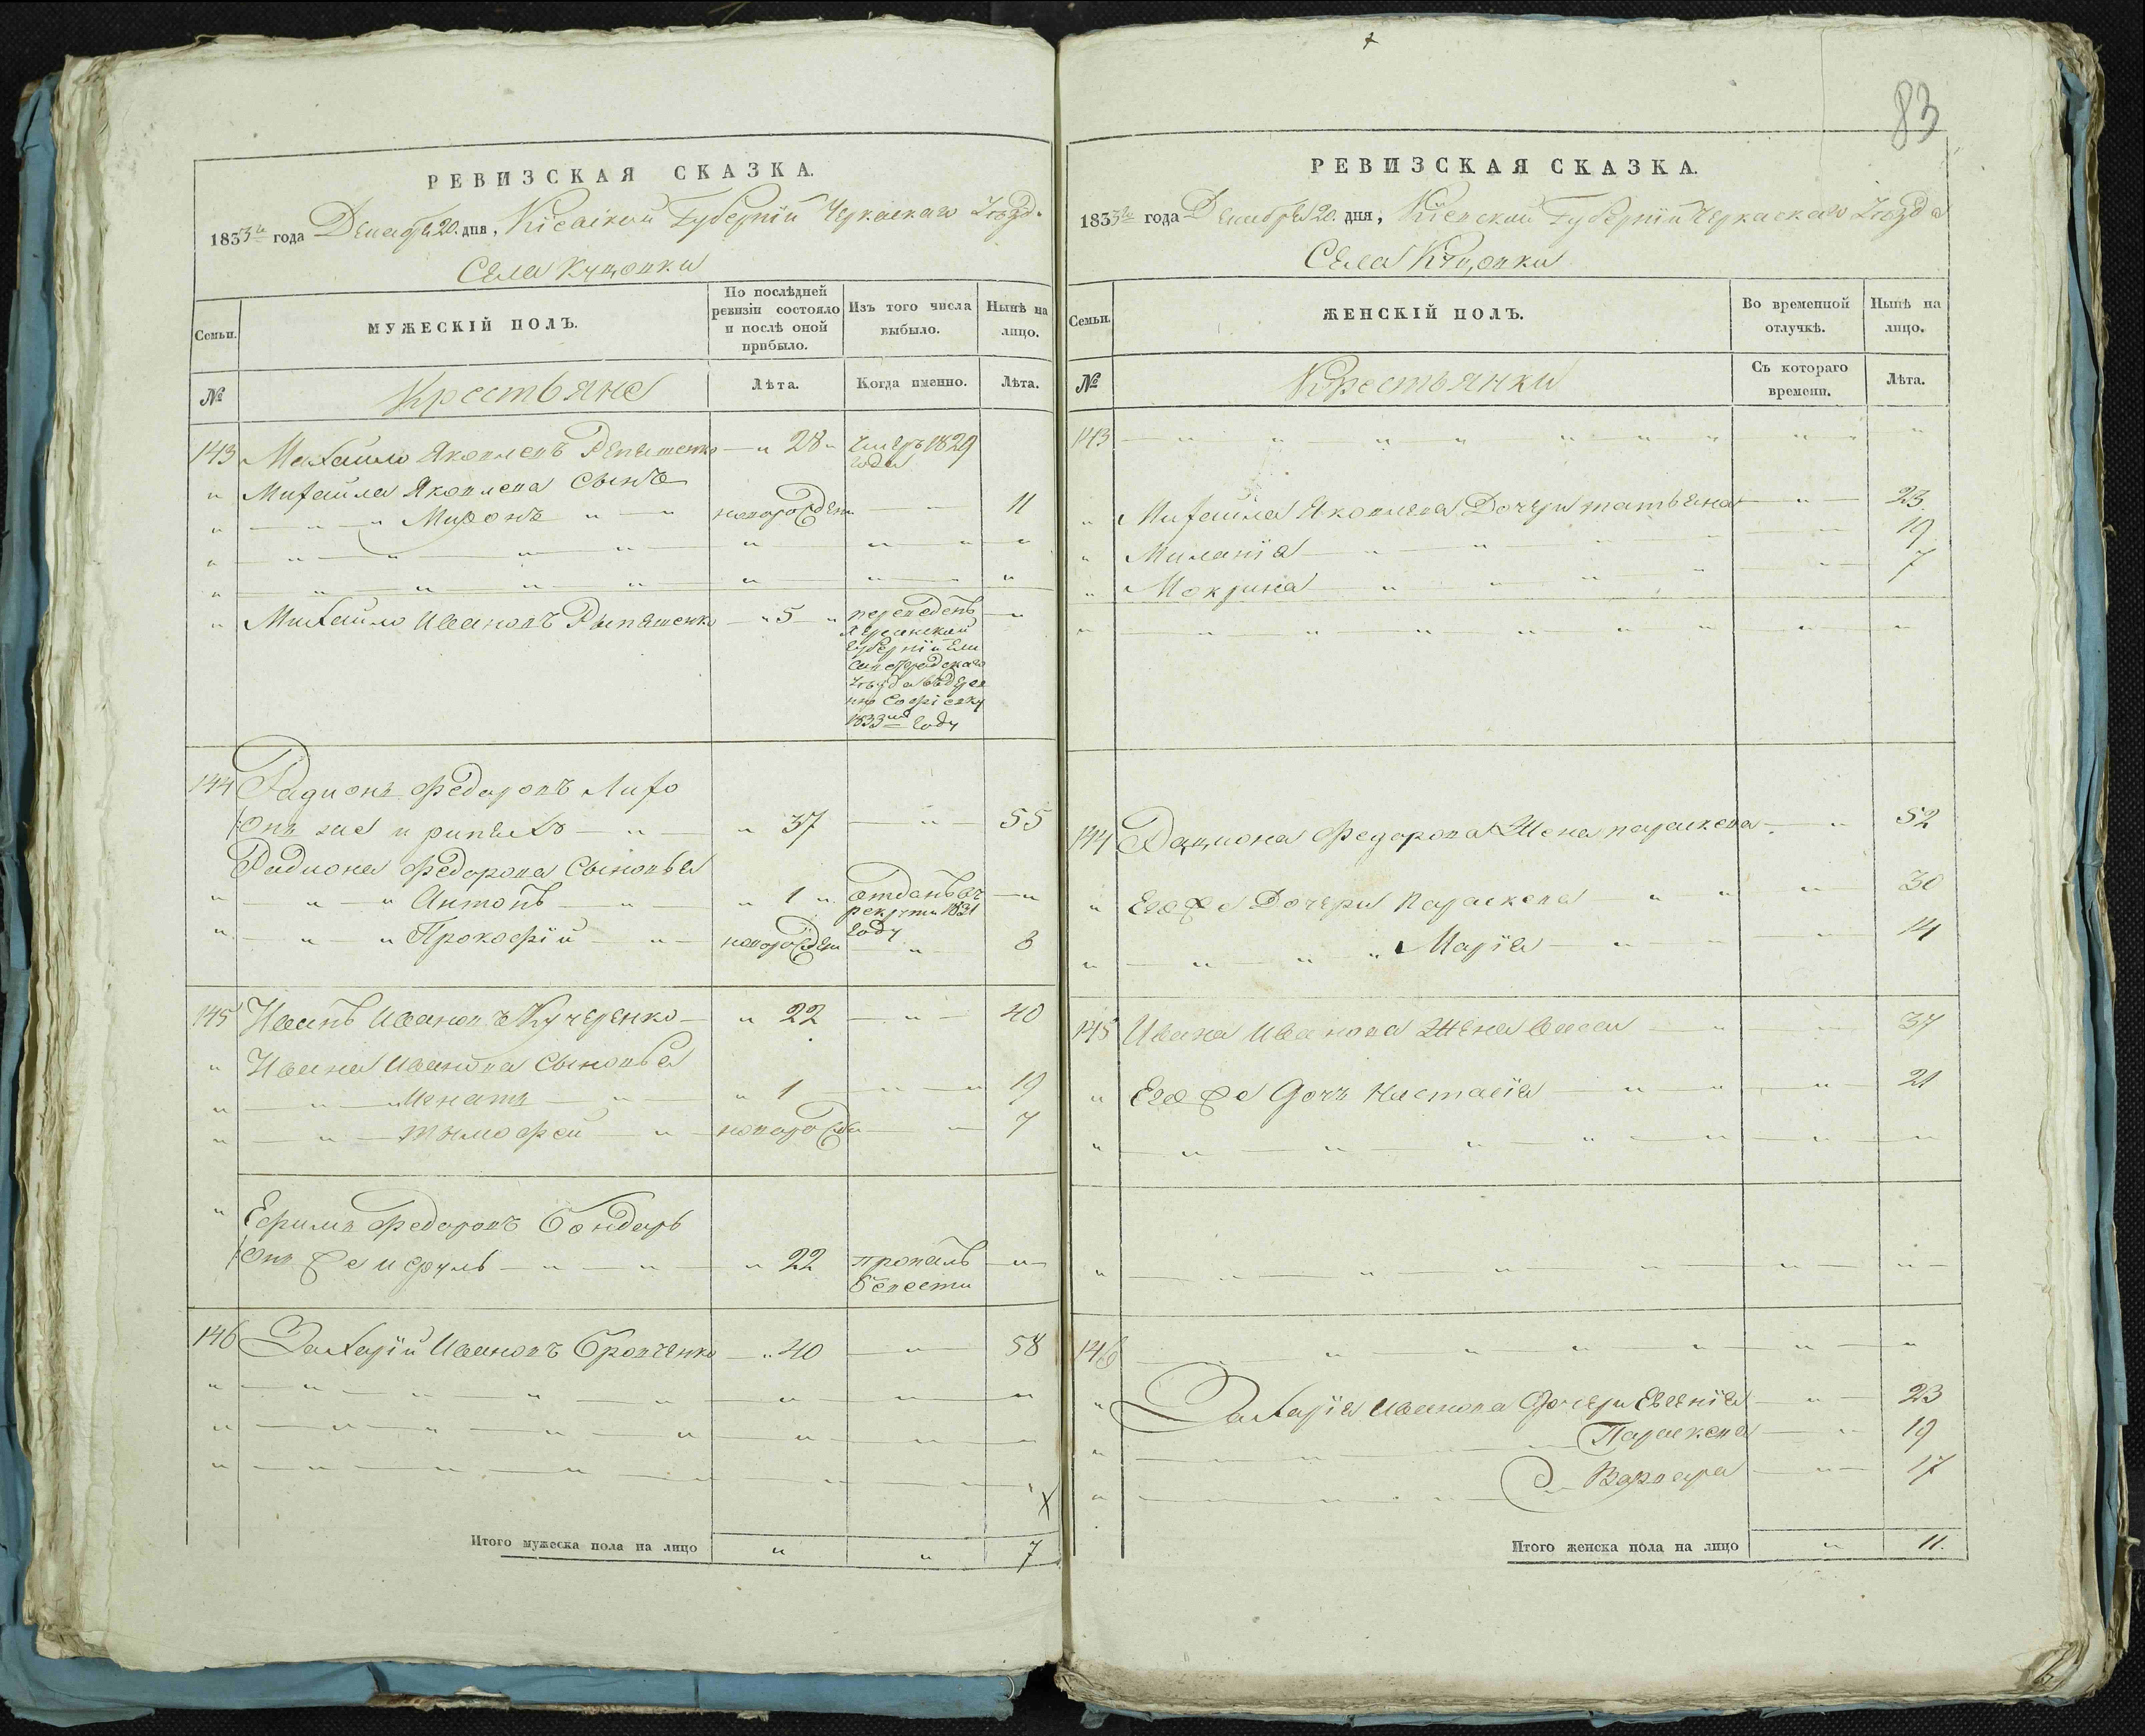 83
РЕВИЗСКАЯ СКАЗКА.
1833го года Декабря 20. дня, Кіевской Губерніи Черкаскаго Уѣзда
Села Куцовки
Семьи.
МУЖЕСКІЙ ПОЛЪ.
По послѣдней ревизіи состояло и послѣ оной прибыло.
Изъ того числа выбыло.
Нынѣ на лицо.
№
Крестьяне
Лѣта.
Когда именно.
Лѣта.
143 Михайло Яковлевъ Репѣшенко — " 28 " умеръ 1829 года
" Михайла Яковлева Сынъ
" — " — " Миронъ " — " новорожден — " — 11
" Михайло Ивановъ Рыпѣшенко — " 5 — " переведенъ —"
Херсонской
Губерніи Ели
саветградскаго
Уѣзда въ дерев
ню Софіевку
1833мъ Году
144 Радионъ Федоровъ Лихо
Онъ же и рипѣхъ — " — " 37 — " — 55
Радиона Федорова Сыновья
" — " — " Антонъ — " — " 1 " отданъ въ рекруты 1831 Году — "
" — " — " Прокофій — " — новорожден — " — 3
145 Иванъ Ивановъ Кучеренко — " 22 — " — 40
" Ивана Иванова Сыновья
" — " — " Игнатъ — " — " 1 — " — " 19
" — " — Тымофей — " — новорожде — " — 7
" Ефимъ Федоровъ Бондарь
Онъ же и — " — " — " 22 пропалъ безвести — " —
146 Захарій Ивановъ Бровченко — " 40 — " — 58
Итого мужеска пола на лицо " " 7
РЕВИЗСКАЯ СКАЗКА.
1833го года Декабря 20. дня, Кіевской Губерніи Черкаскаго Уѣзда
Села Куцовки
Семьи.
ЖЕНСКІЙ ПОЛЪ.
Во временной отлучкѣ.
Нынѣ на лицо.
№
Крестьянки
Съ котораго времени.
Лѣта.
143 — " " " " " " " " " "
" Михайла Яковлева Дочери татьяна — " — 23
" Миланія — " — " — " — 19
" Мокрина — " — " — " — 7
144 Радиона Федорова Жена параскева — " 52
" Его же Дочери Параскева " " — " — 30
" — " " " Марія — " — " — " — 14
145 Ивана Иванова Жена Васса — " — 37
" Его же Дочь Настасія — " — " — " — 21
146
" Захарія Иванова Дочери Евгенія — " — 23
" Параскева — " 19
" Варвара — " — 17
Итого женска пола на лицо " 11.